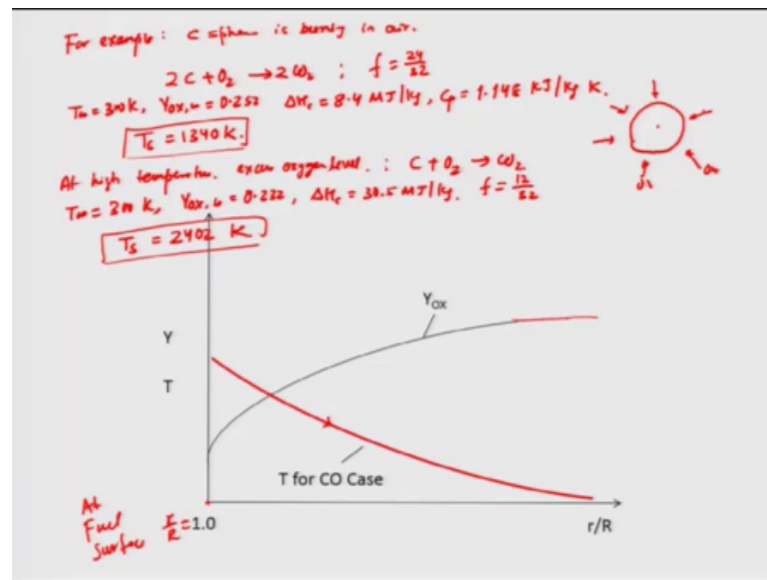 For example: C sphere is burning in air.
2C + O₂ → 2CO₂ ; f = 24/32
T∞ = 300 K, Yox,∞ = 0.232 ΔHc = 8.4 MJ/kg, Cp = 1.148 KJ/kg K.
Ts = 1340 K.
At high temperature. excess oxygen level. : C + O₂ → CO₂
T∞ = 300 K, Yox,∞ = 0.232, ΔHc = 30.5 MJ/kg. f = 12/32
Ts = 2402 K
Y_OX
Y
T
T for CO Case
At
Fuel
Surface
r/R = 1.0
r/R